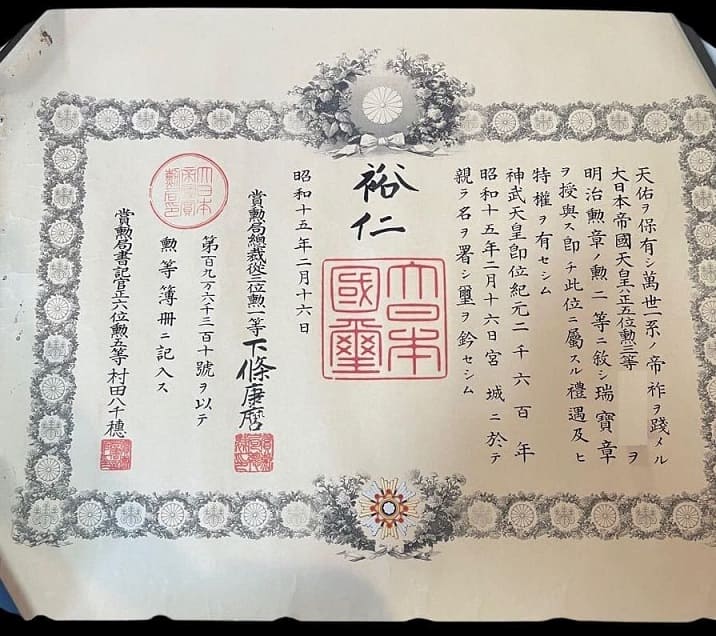 天佑ヲ保有シ萬世一系ノ帝祚ヲ踐メル
大日本帝國天皇ハ正五位勲三等 ヲ
明治勲章ノ勲二等ニ敍シ瑞寶章
ヲ授與ス卽チ此位ニ屬スル禮遇及ヒ
特權ヲ有セシム
神武天皇卽位紀元二千六百年
昭和十五年二月十六日宮城ニ於テ
親ラ名ヲ署シ璽ヲ鈐セシム
裕仁
大日本國璽
昭和十五年二月十六日
賞勲局總裁從三位勲一等下條康麿
第百九万六千三百十號ヲ以テ
勲等簿册ニ記入ス
賞勲局書記官正六位勲五等村田八千穗